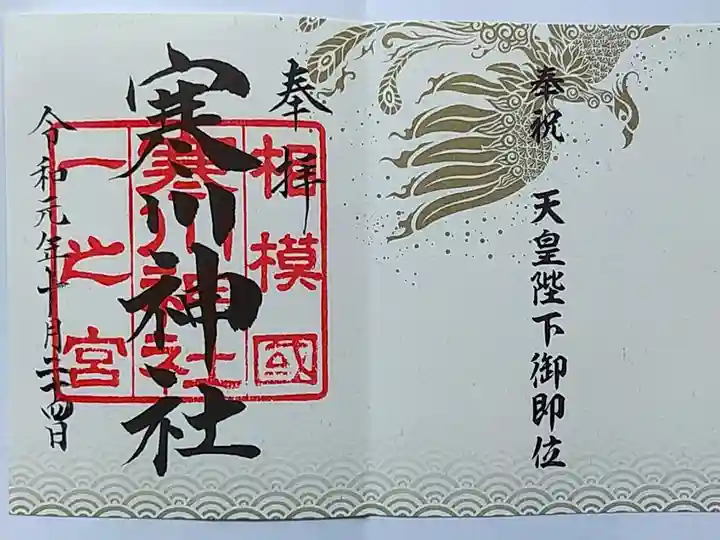 奉祝 天皇陛下御即位
奉拝
寒川神社
令和元年十月二十四日
相模國
寒川神社
一之宮